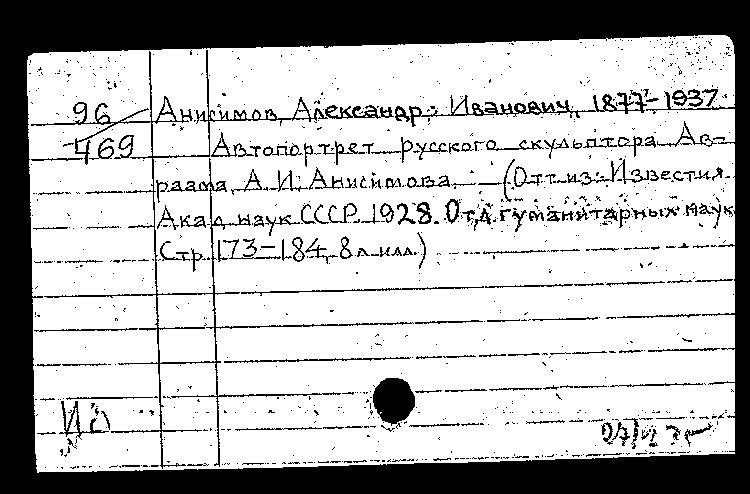 96 Анисимов, Александр Иванович, 1877-1937
469 Автопортрет русского скульптора Ав-
раама, А. И. Анисимова. (Отт. из: Известия
Акад. наук СССР. 1928. Отд. гуманитарных наук
Стр. 173-184, 8 л. илл.)